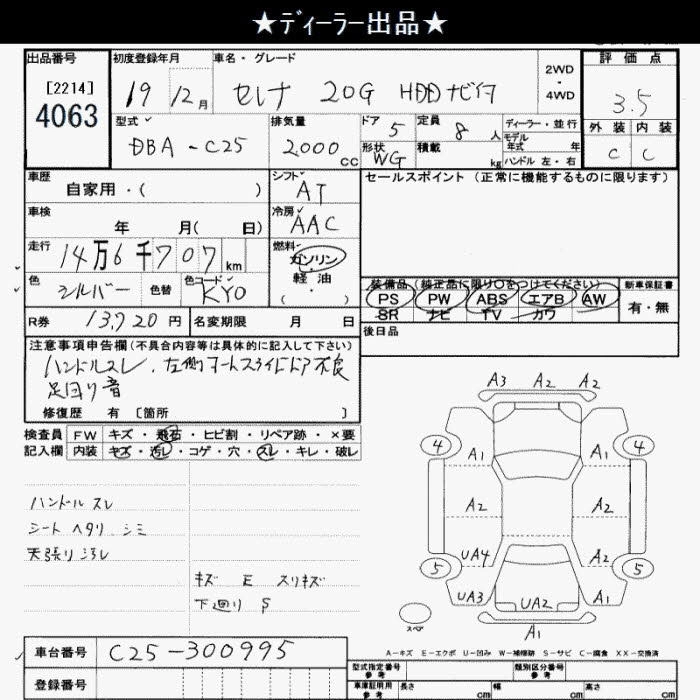 ★ディーラー出品★
出品番号
[2214]
4063
初度登録年月
19 12月
車名・グレード
セレナ 20G HDDナビ付
2WD
・
4WD
評価点
3.5
外装 内装
C C
型式
DBA-C25
排気量
2000
cc
ドア 5
形状
WG
定員
8 人
積載
kg
ディーラー・並行
モデル
年式 年
ハンドル 左・右
車歴
自家用・( )
シフト
AT
車検
年 月( 日)
冷房
AAC
走行
14万6千707
km
燃料
ガソリン
・
軽油
( )
色
シルバー
色替
色コード
KY0
R券 13,720円
名変期限 月 日
セールスポイント(正常に機能するものに限ります)
装備品(純正品に限り○をつけてください)
PS PW ABS エアB AW
SR ナビ TV カワ
新車保証書
有・無
後日品
注意事項申告欄(不具合内容等は具体的に記入して下さい)
ハンドルスレ、左側オートスライドドア不良
足回り音
修復歴 有 [箇所 ]
検査員
記入欄
FW キズ・飛石・ヒビ割・リペア跡・×要
内装 キズ・汚レ・コゲ・穴・スレ・キレ・破レ
ハンドル スレ
シート ヘタリ シミ
天張り
キズ E スリキズ
下廻り S
A3 A2 A2
4 4
A1 A1
A2 A2
UA4 A2
5 5
UA3 UA2 A1
A1
スペア
A-キズ E-エクボ U-凹み W-補修跡 S-サビ C-腐食 XX-交換済
車台番号 C25-300995
登録番号
型式指定番号
参考
類別区分番号
参考
車庫証明用
参考
長さ cm 幅 cm 高さ cm